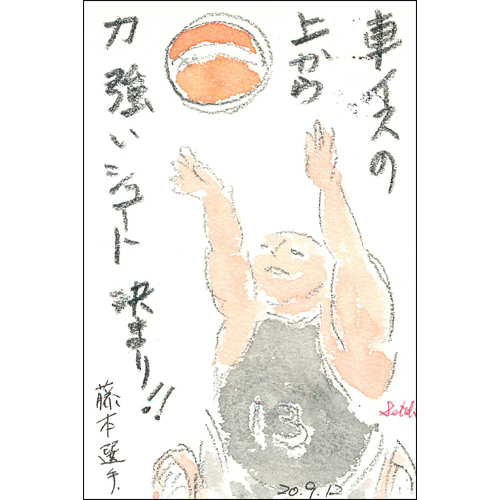 車イスの
上から
力強いシュート 決まり!!
藤本選手.
13
20.9.12